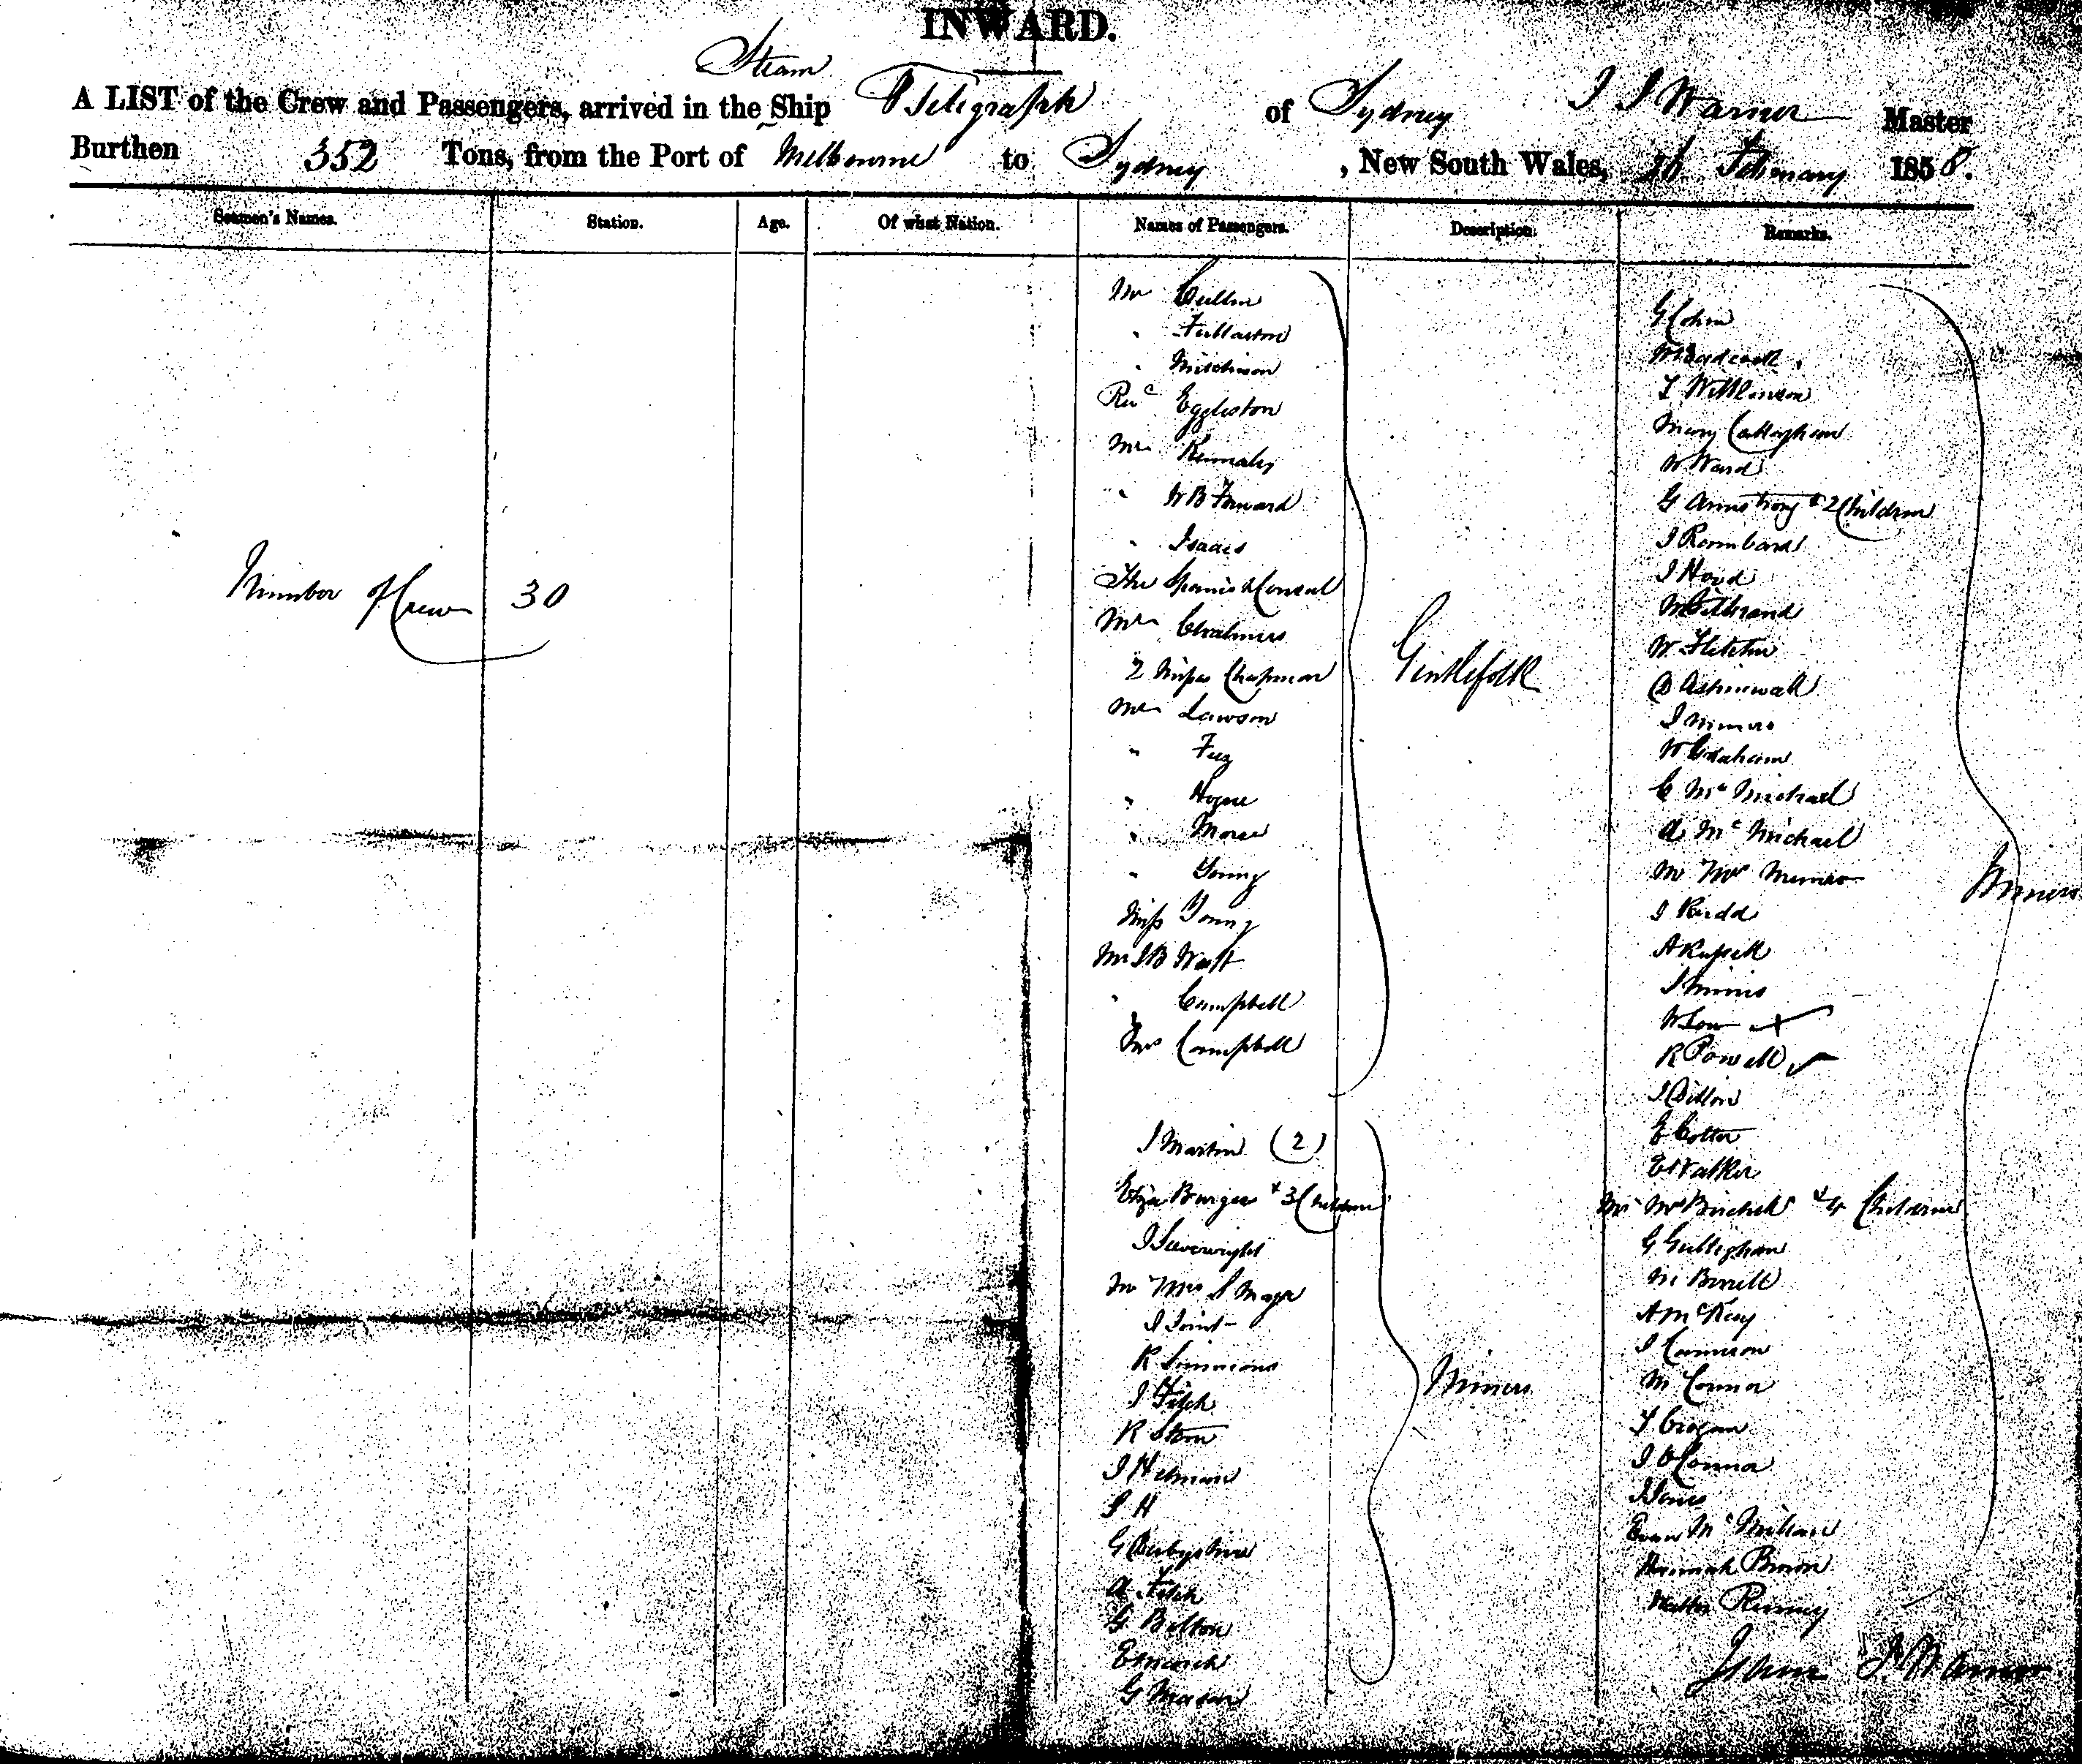 INWARD.
Steam
A LIST of the Crew and Passengers, arrived in the Ship Telegraph of Sydney J J Warner Master
Burthen 352 Tons, from the Port of Melbourne to Sydney, New South Wales, February 1858.
Seamen's Names. Station. Age. Of what Nation. Names of Passengers. Description. Remarks.
Number of Crew 30
Mr Cullen
" Fullarton
" Mitchison
Revd Eggleston
Mr
" W B Forward
" Isaacs
The Spanish Consul
Mr Chalmers
2 Misses Chapman
Mr Lawson
"
" Hogue
" Morse
" Young
Miss Young
Mr J B West
" Campbell
Mrs Campbell
Gentlefolk
J Martin (2)
Eliza Burges + 3 Children
J Severwright
Mr Mrs S Mayr
J Joint
R Simmons
J Fitch
R Stern
J Helman
S H
G Derbyshire
A Fitch
G Bolton
E
G Mason
Miners
G Cohen
T Wilkinson
Mary Callaghan
W Ward
G Armstrong + 2 Children
J Rombard
J Hood
M Gillbrand
W Fletcher
D Ashinwall
J Nimmo
W Graham
C McMichael
A McMichael
Mr Mrs Munro
J Rudd
A Russell
W Low
R Powell
J Dillon
E Cotter
E Walker
Mr Mrs Birchell + 4 Children
G Gulligham
M Birrell
A McKay
J Cameron
M Connor
T Grogan
J O'Connor
J Jones
Evan McMillan
Hannah Brown
Walter
Miners
James J Warner